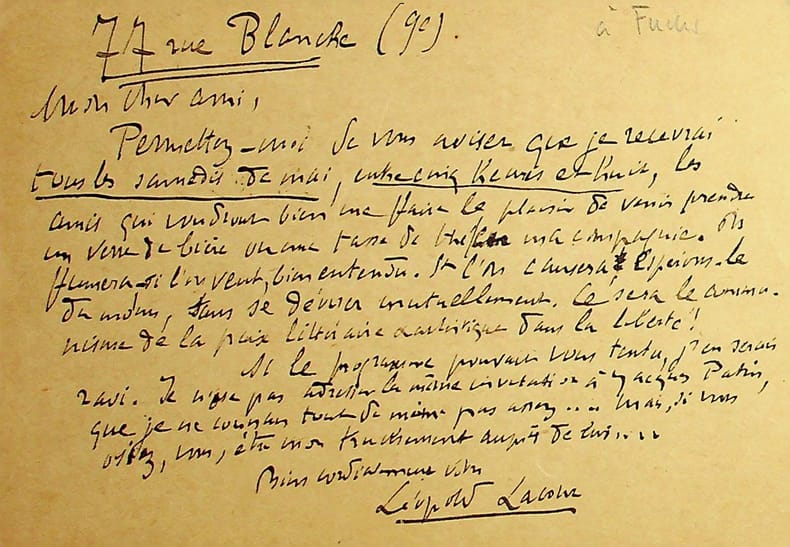 77 rue Blanche (9e).
à Fuchs
Mon cher ami,
Permettez-moi de vous aviser que je recevrai
tous les samedis de mai, entre cinq heures et huit, les
amis qui voudront bien me faire le plaisir de venir prendre
un verre de bière ou une tasse de thé en ma compagnie. On
fumera si l'on veut, bien entendu. Et l'on causera, espérons-le
du moins, sans se dévorer mutuellement. Ce sera le commu-
nisme de la paix littéraire & artistique dans la liberté !
Si le programme pouvait vous tenter, j'en serais
ravi. Je n'ose pas adresser la même invitation à Jacques Patin,
que je ne connais tout de même pas assez .... mais, si vous
osiez, vous, être mon truchement auprès de lui ....
Bien cordialement vôtre
Léopold Lacour